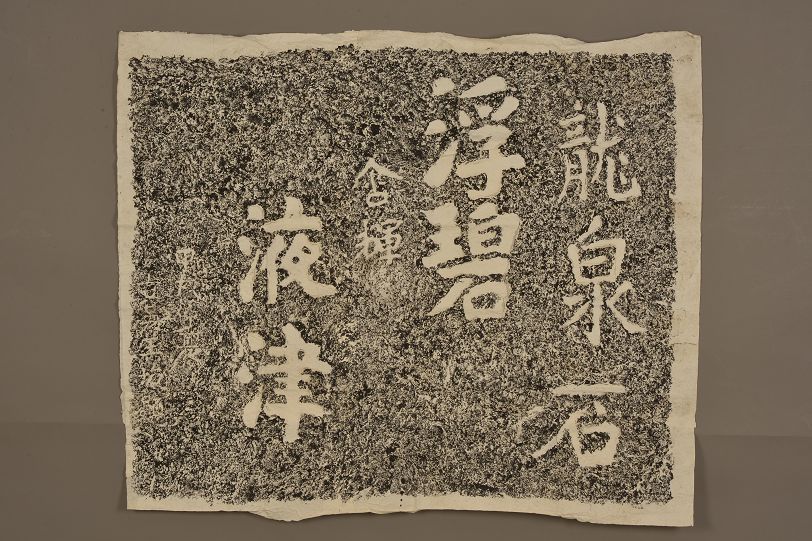 龍泉石
浮碧
含輝
液津